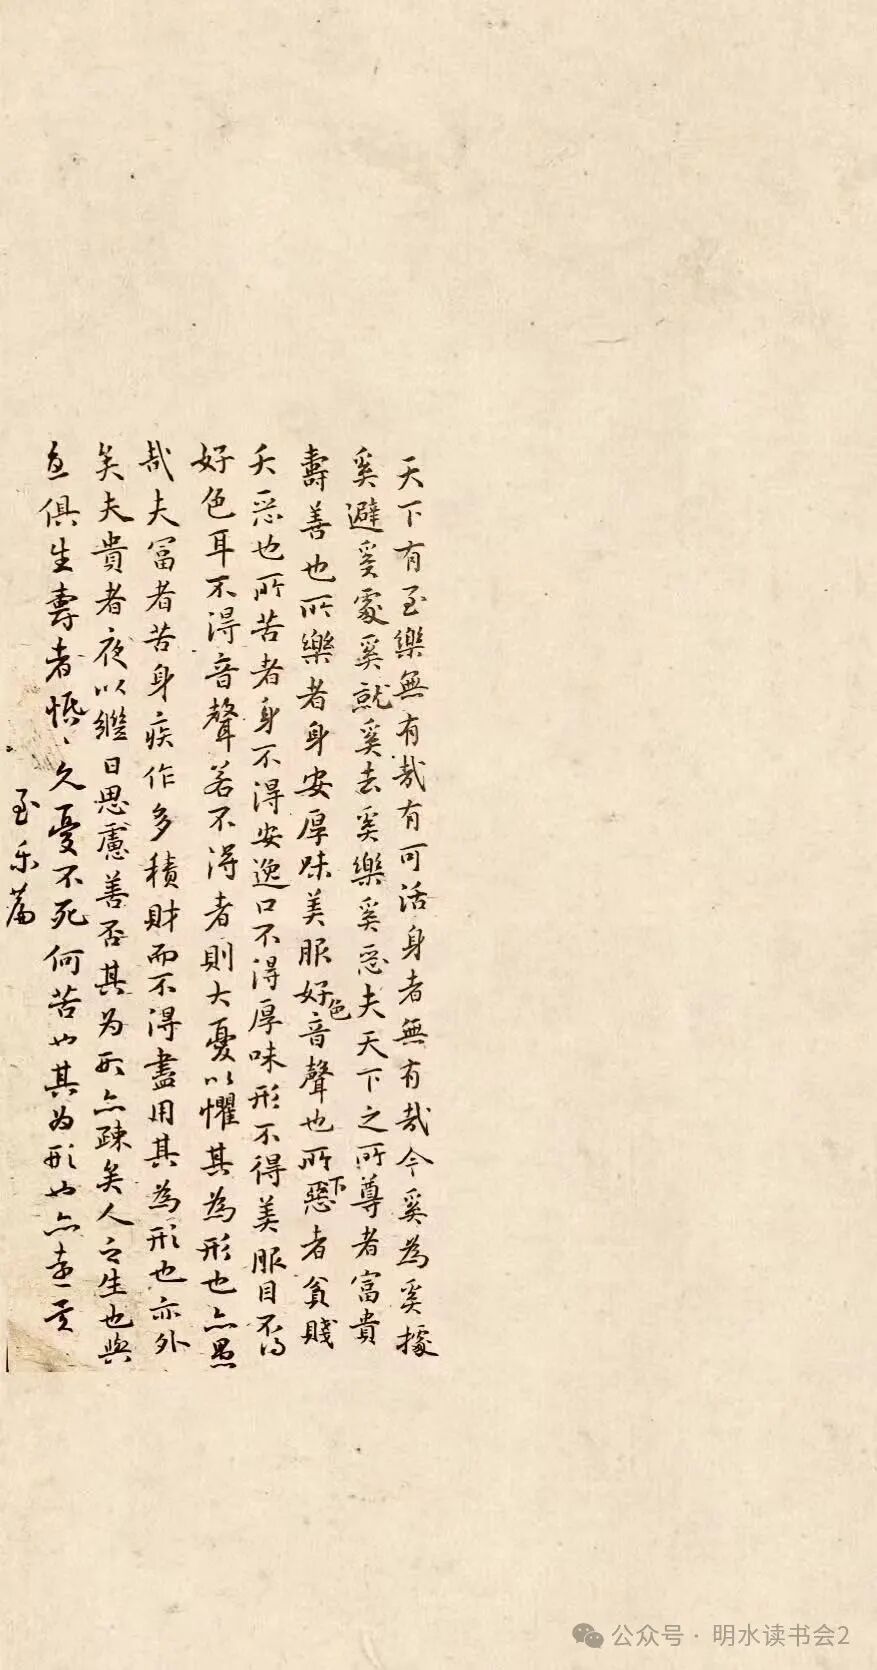 天下有至樂無有哉有可活身者無有哉今奚為奚據
奚避奚處奚就奚去奚樂奚惡夫天下之所尊者富貴
壽善也所樂者身安厚味美服好色音聲也所下惡者貧賤
夭惡也所苦者身不得安逸口不得厚味形不得美服目不得
好色耳不得音聲若不得者則大憂以懼其為形也亦愚
哉夫富者苦身疾作多積財而不得盡用其為形也亦外
矣夫貴者夜以繼日思慮善否其为形亦疎矣人之生也與
憂俱生壽者惛〻久憂不死何苦也其为形也亦遠矣
至乐篇
公众号·明水读书会2